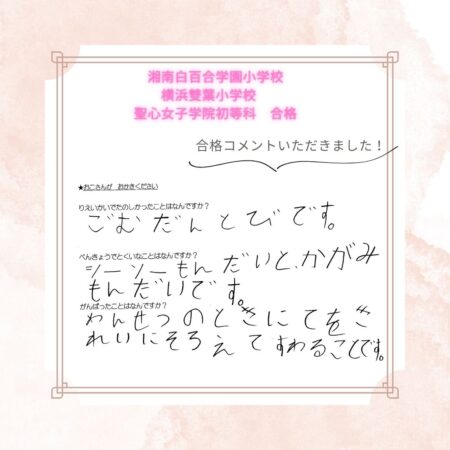 湘南白百合学園小学校
横浜雙葉小学校
聖心女子学院初等科　合格
合格コメントいただきました！
★おこさんが　おかきください
りえいかいでたのしかったことはなんですか？
ごむだんとびです。
べんきょうでとくいなことはなんですか？
シーソーもんだいと、かがみ
もんだいです。
がんばったことはなんですか？
めんせつのときにてをき
れいにそろえてすわることです。